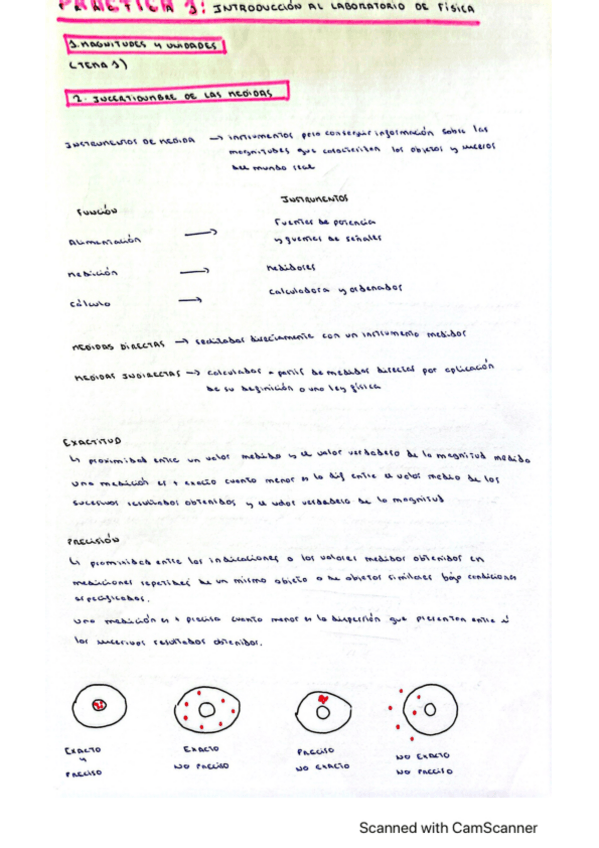 PRÁCTICA 1: INTRODUCCIÓN AL LABORATORIO DE FÍSICA
1. MAGNITUDES Y UNIDADES
(TEMA 1)
2. INCERTIDUMBRE DE LAS MEDIDAS
INSTRUMENTOS DE MEDIDA → instrumentos para conseguir información sobre las
magnitudes que caracterizan los objetos y sucesos
del mundo real
FUNCIÓN INSTRUMENTOS
ALIMENTACIÓN → Fuentes de potencia
y fuentes de señales
MEDICIÓN → Medidores
CÁLCULO → calculadora y ordenadores
MEDIDAS DIRECTAS → realizadas directamente con un instrumento medidor
MEDIDAS INDIRECTAS → calculadas a partir de medidas directas por aplicación
de su definición o una ley física
EXACTITUD
↳ proximidad entre un valor medido y el valor verdadero de la magnitud medida
una medición es + exacta cuanto menor es la dif entre el valor medio de los
sucesivos resultados obtenidos y el valor verdadero de la magnitud
PRECISIÓN
↳ proximidad entre las indicaciones o los valores medidos obtenidos en
mediciones repetidas de un mismo objeto o de objetos similares bajo condiciones
especificadas.
una medición es + precisa cuanto menor es la dispersión que presentan entre sí
los sucesivos resultados obtenidos.
EXACTO
Y
PRECISO
EXACTO
NO PRECISO
PRECISO
NO EXACTO
NO EXACTO
NO PRECISO
Scanned with CamScanner